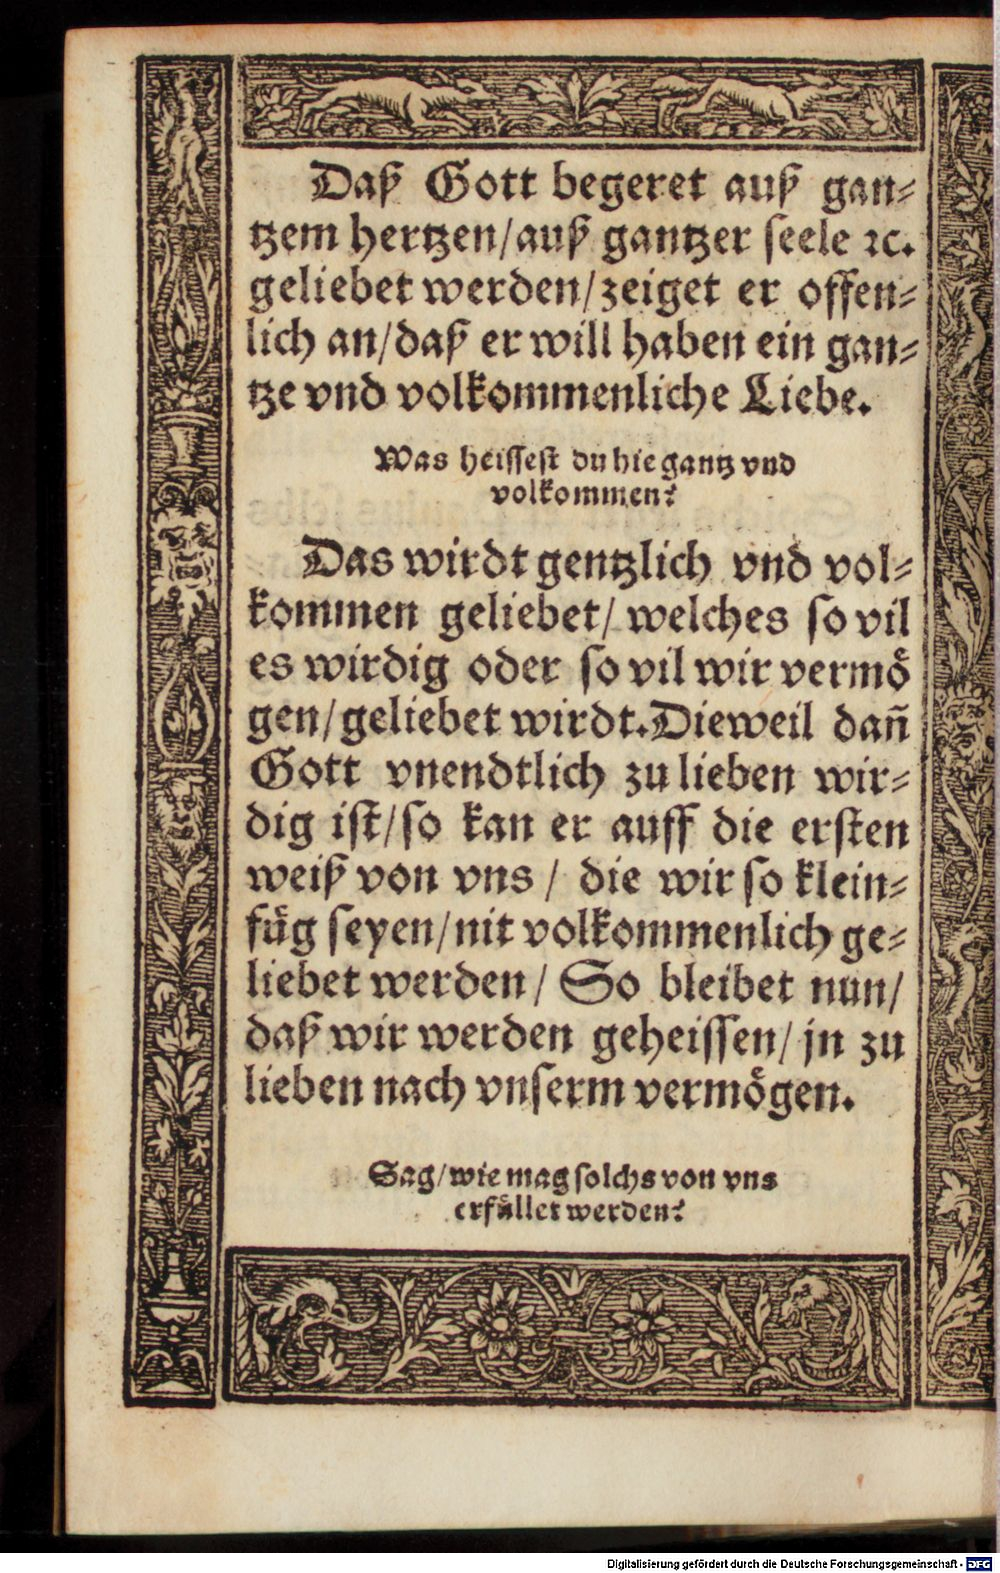 Daß Gott begeret auß gan⸗
tzem hertzen/auß gantzer seele ꝛc.
geliebet werden/zeiget er offen⸗
lich an/daß er will haben ein gan⸗
tze vnd volkommenliche Liebe.
Was heissest du hie gantz vnd
volkommen?
Das wirdt gentzlich vnd vol⸗
kommen geliebet/ welches so vil
es wirdig oder so vil wir vermoͤ
gen/geliebet wirdt.Dieweil dañ
Gott vnendtlich zu lieben wir⸗
dig ist/so kan er auff die ersten
weiß von vns / die wir so klein⸗
fuͤg seyen/nit volkommenlich ge⸗
liebet werden/ So bleibet nun/
daß wir werden geheissen/ jn zu
lieben nach vnserm vermoͤgen.
Sag/wie mag solchs von vns
erfuͤllet werden?
Digitalisierung gefördert durch die Deutsche Forschungsgemeinschaft - DFG